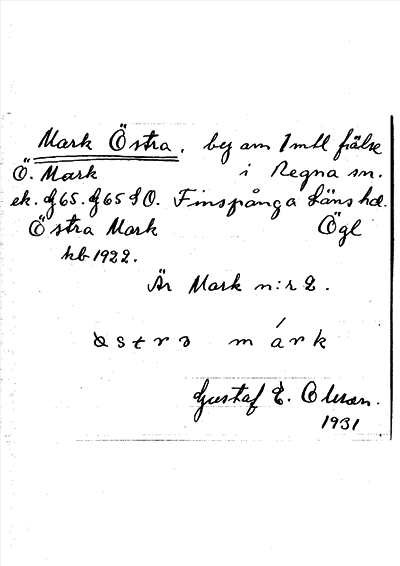 Mark Östra. by om 1 mtl frälse
Ö. Mark i Regna sn.
ek. J65. J65 SO. Finspånga läns hd.
Östra Mark Ögl
hb 1922.
Är Mark n:r 2.
östra márk
Gustaf E. Olsson.
1931